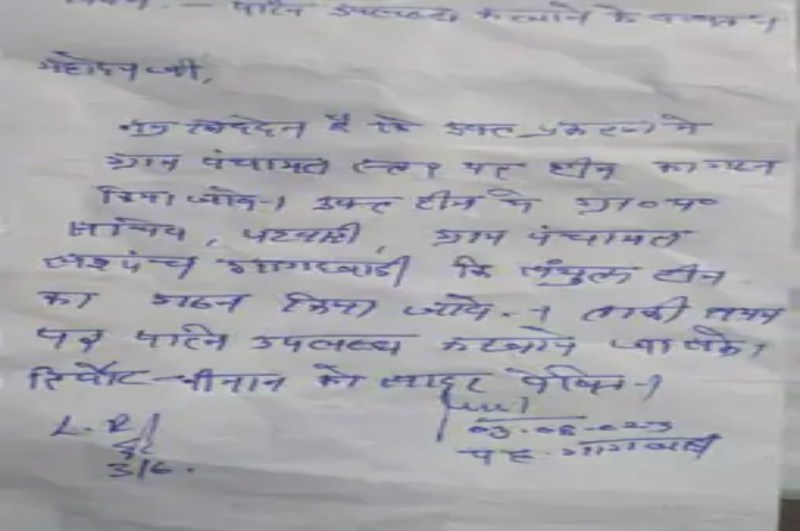 विषय :- पानि उपलब्ध करवाने के सम्बन्ध ।
महोदय जी,
निवेदन है कि उक्त प्रकरण मे
ग्राम पंचायत स्तर पर टीम का गठन
किया जावे । उक्त टीम मे ग्रा० पं०
सचिव, पटवारी, ग्राम पंचायत
सरपंच कि संयुक्त टीम
का गठन किया जावे । ताकी समय
पर पानि उपलब्ध करवाये जा सके।
रिर्पोट श्रीमान को सादर प्रेषित ।
L.R
03-06-023
3/6.